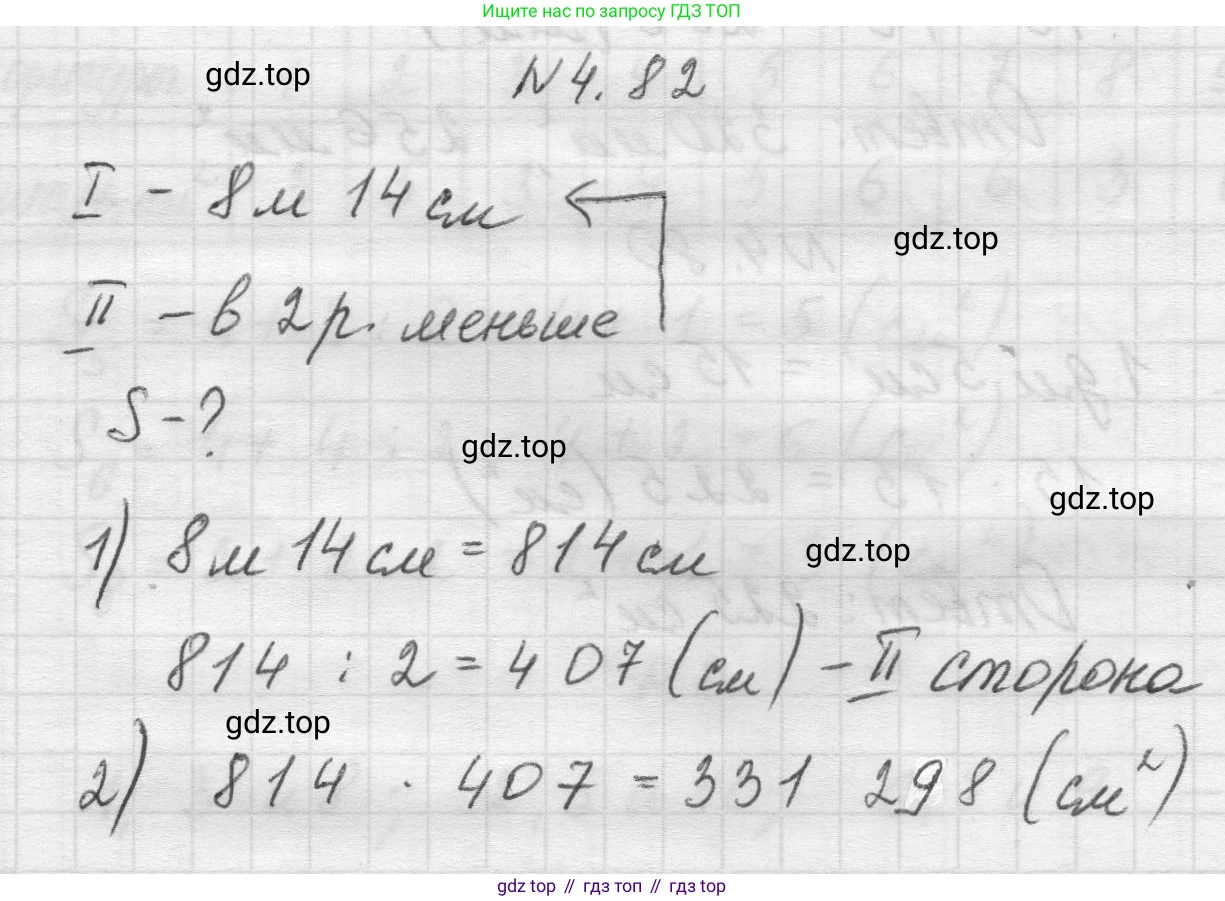 Ищите нас по запросу ГДЗ ТОП
gdz.top
N 4. 82
I - 8 м 14 см
gdz.top
II - в 2 р. меньше
S - ?
gdz.top
gdz.top
1) 8 м 14 см = 814 см
gdz.top
814 : 2 = 407 (см) - II сторона
gdz.top
2) 814 · 407 = 331 298 (см²)
gdz top // гдз топ // гдз top